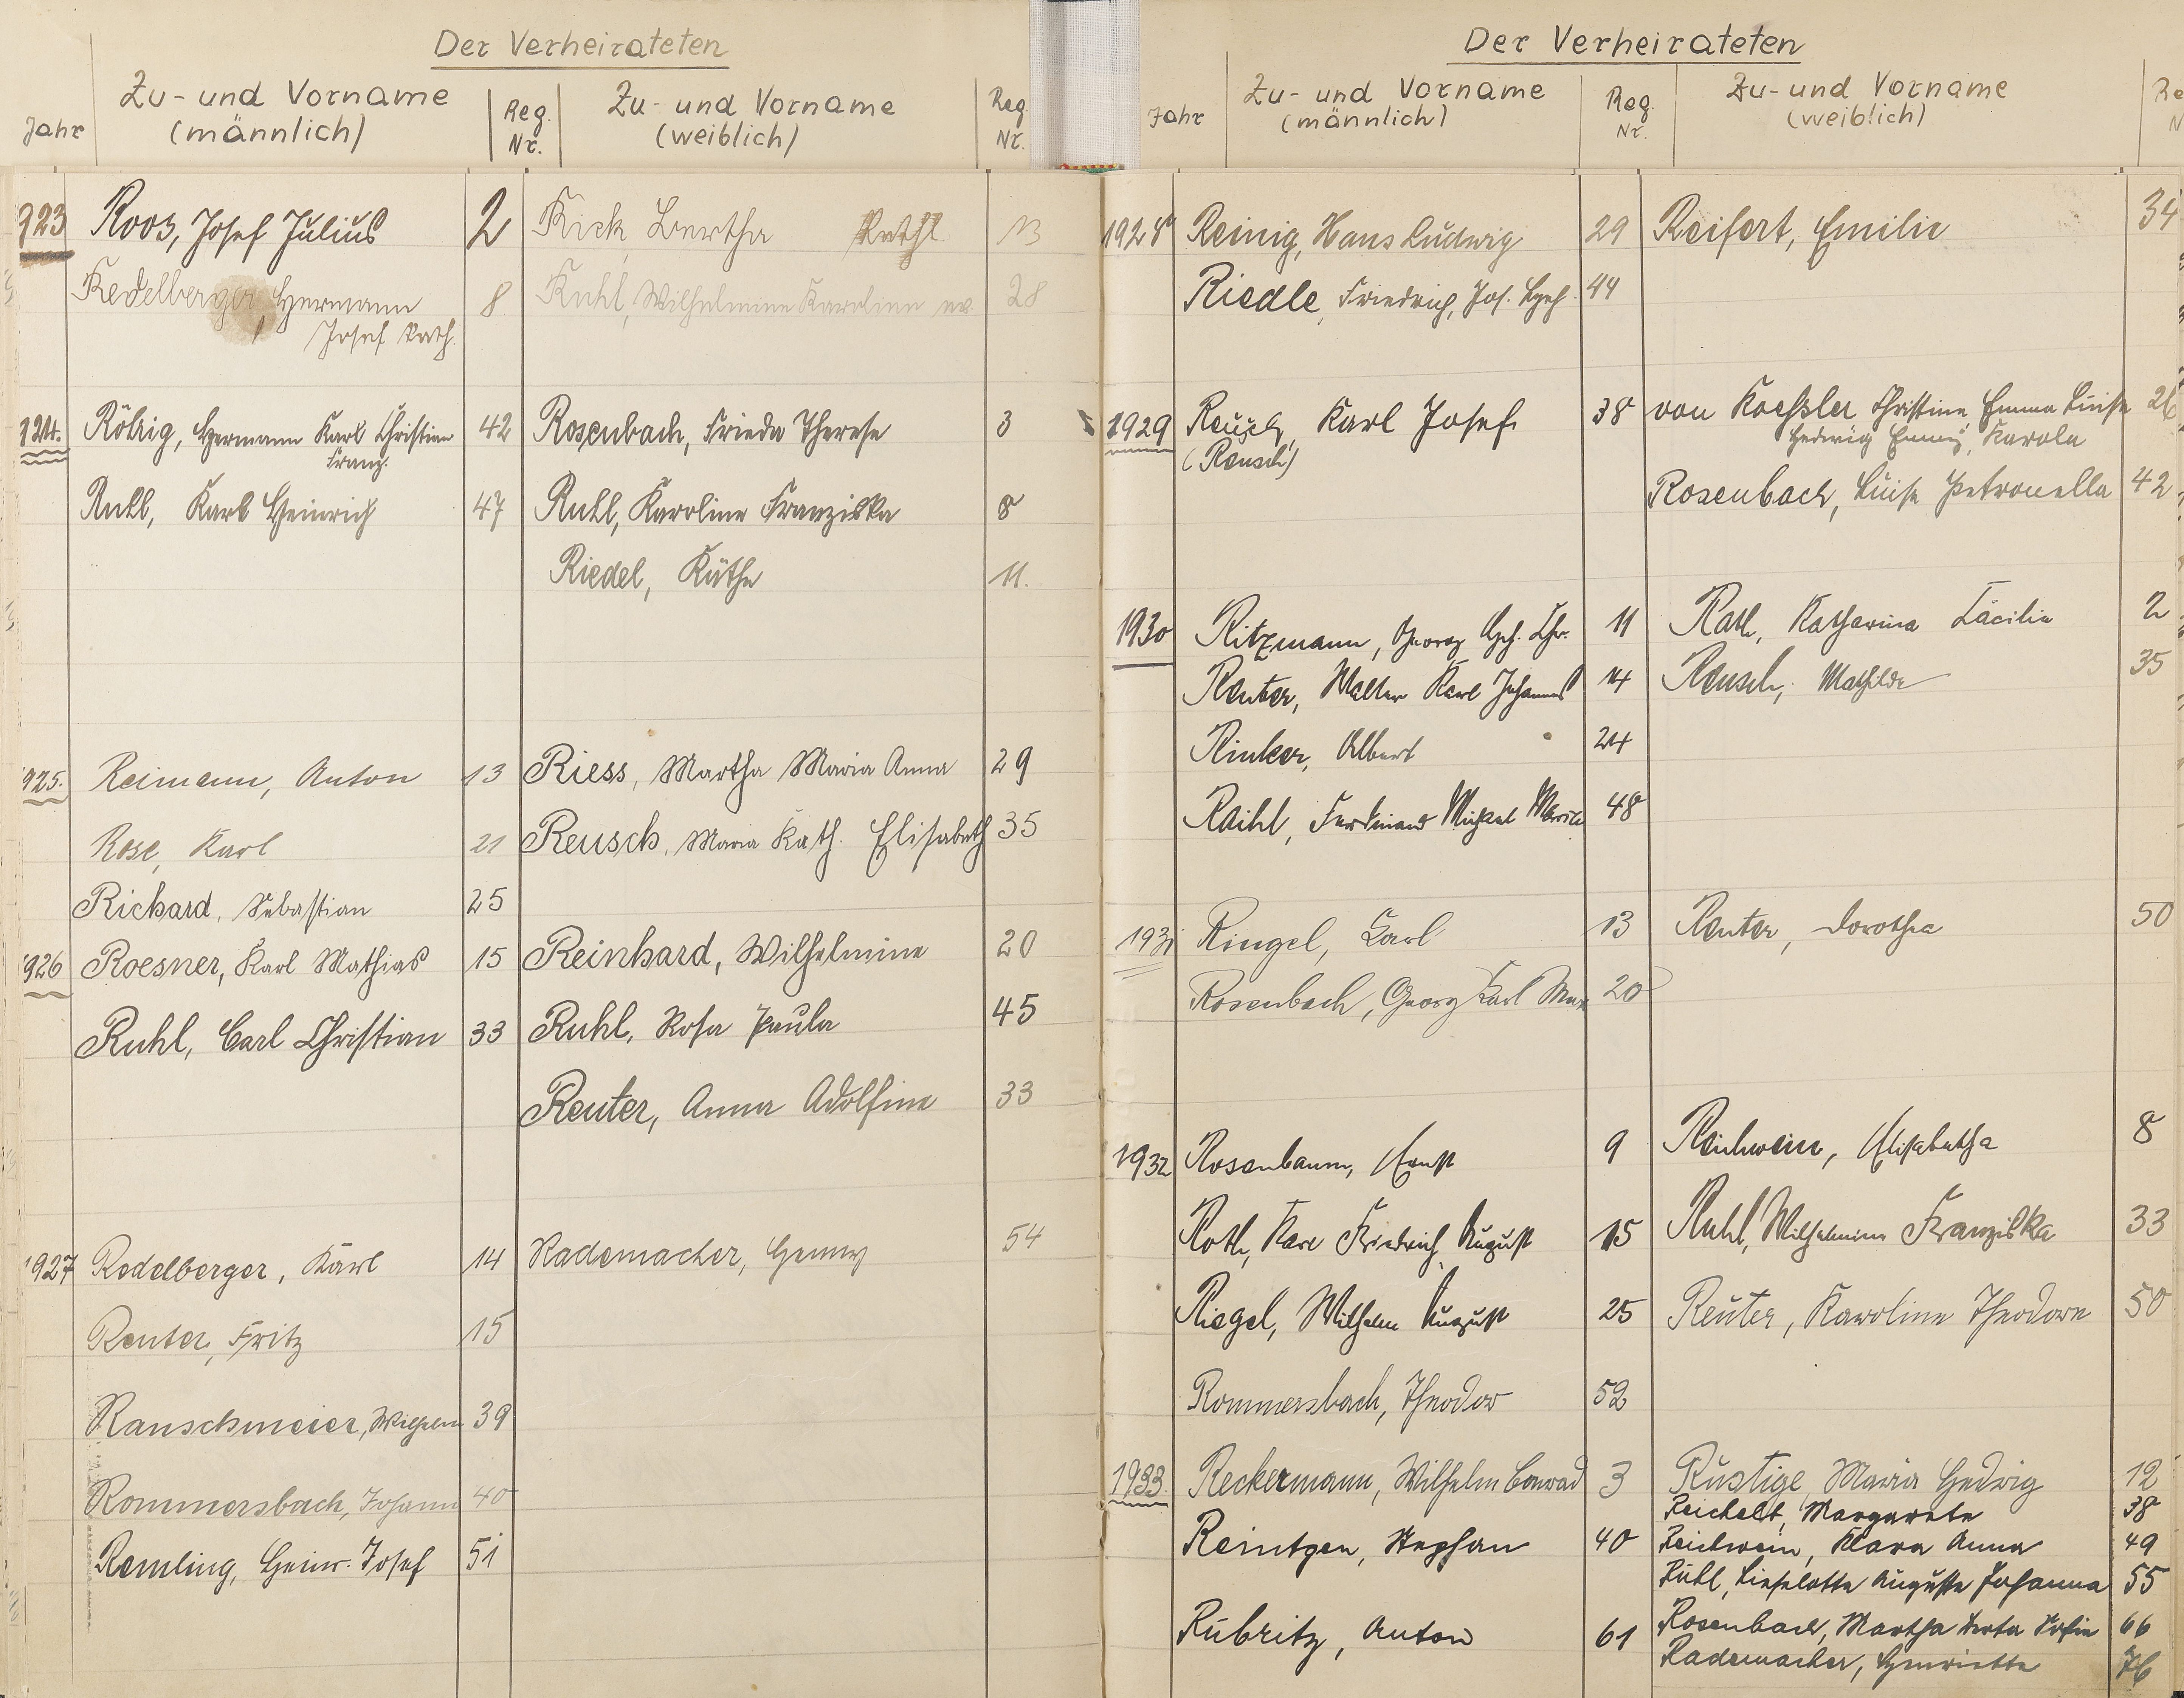 Der Verheirateten
Jahr Zu- und Vorname (männlich) Reg. Nr. Zu- und Vorname (weiblich) Reg. Nr.
923 Roos, Josef Julius 2 Rick Bertha 13
Redelberger Hermann 8 Ruhl, Wilhelmine Karoline 28
Josef Kath.
924. Röhrig, Hermann Karl Christian 42 Rosenbach, Frieda Therese 3
Franz.
Ruhl, Karl Heinrich 47 Ruhl, Karoline Franziska 8
Riedel, Käthe 11.
925. Reimann, Anton 13 Riess, Martha Maria Anna 29
Rose, Karl 21 Reusch, Maria Kath. Elisabeth 35
Richard, Sebastian 25
1926 Roesner, Karl Mathias 15 Reinhard, Wilhelmine 20
Ruhl, Carl Christian 33 Ruhl, Rosa Paula 45
Reuter, Anna Adolfine 33
1927 Redelberger, Karl 14 Rademacher, Henny 54
Reuter, Fritz 15
Rauschmeier, Wilhelm 39
Rommersbach, Johann 40
Remling, Heinr. Josef 51
Der Verheirateten
Jahr Zu- und Vorname (männlich) Reg. Nr. Zu- und Vorname (weiblich) Re
1928 Reinig, Hans Ludwig 29 Reifert, Emilie 34
Riedle, Friedrich, Jos. 44
1929 Reusch, Karl Josef 38 von Roessler Christine Emma Luise 26
(Reusch) Hedwig Emmy, Karola
Rosenbach, Luise Petronella 42
1930 Ritzmann, Georg Hch. Chr. 11 Rath, Katharina Cäcilie 2
Reuter, Walter Karl Johannes 14 Reusch, Mathilde 35
Rinker, Albert 24
Raihl, Ferdinand Michael Maria 48
1931 Ringel, Karl 13 Reuter, Dorothea 50
Rosenbach, Georg Karl Max 20
1932 Rosenbaum, Ernst 9 Reichwein, Elisabetha 8
Roth, Karl Friedrich August 15 Ruhl, Wilhelmine Franziska 33
Riegel, Wilhelm August 25 Reuter, Karoline Theodore 50
Rommersbach, Theodor 52
1933. Reckermann, Wilhelm Conrad 3 Rustige, Maria Hedwig 12
Reichelt, Margarete 38
Reintgen, Stephan 40 Reichwein, Klara Anna 49
Ruhl, Lieselotte Auguste Johanna 55
Rubritz, Anton 61 Rosenbach, Martha Berta Sofie 66
Rademacher, Henriette 76